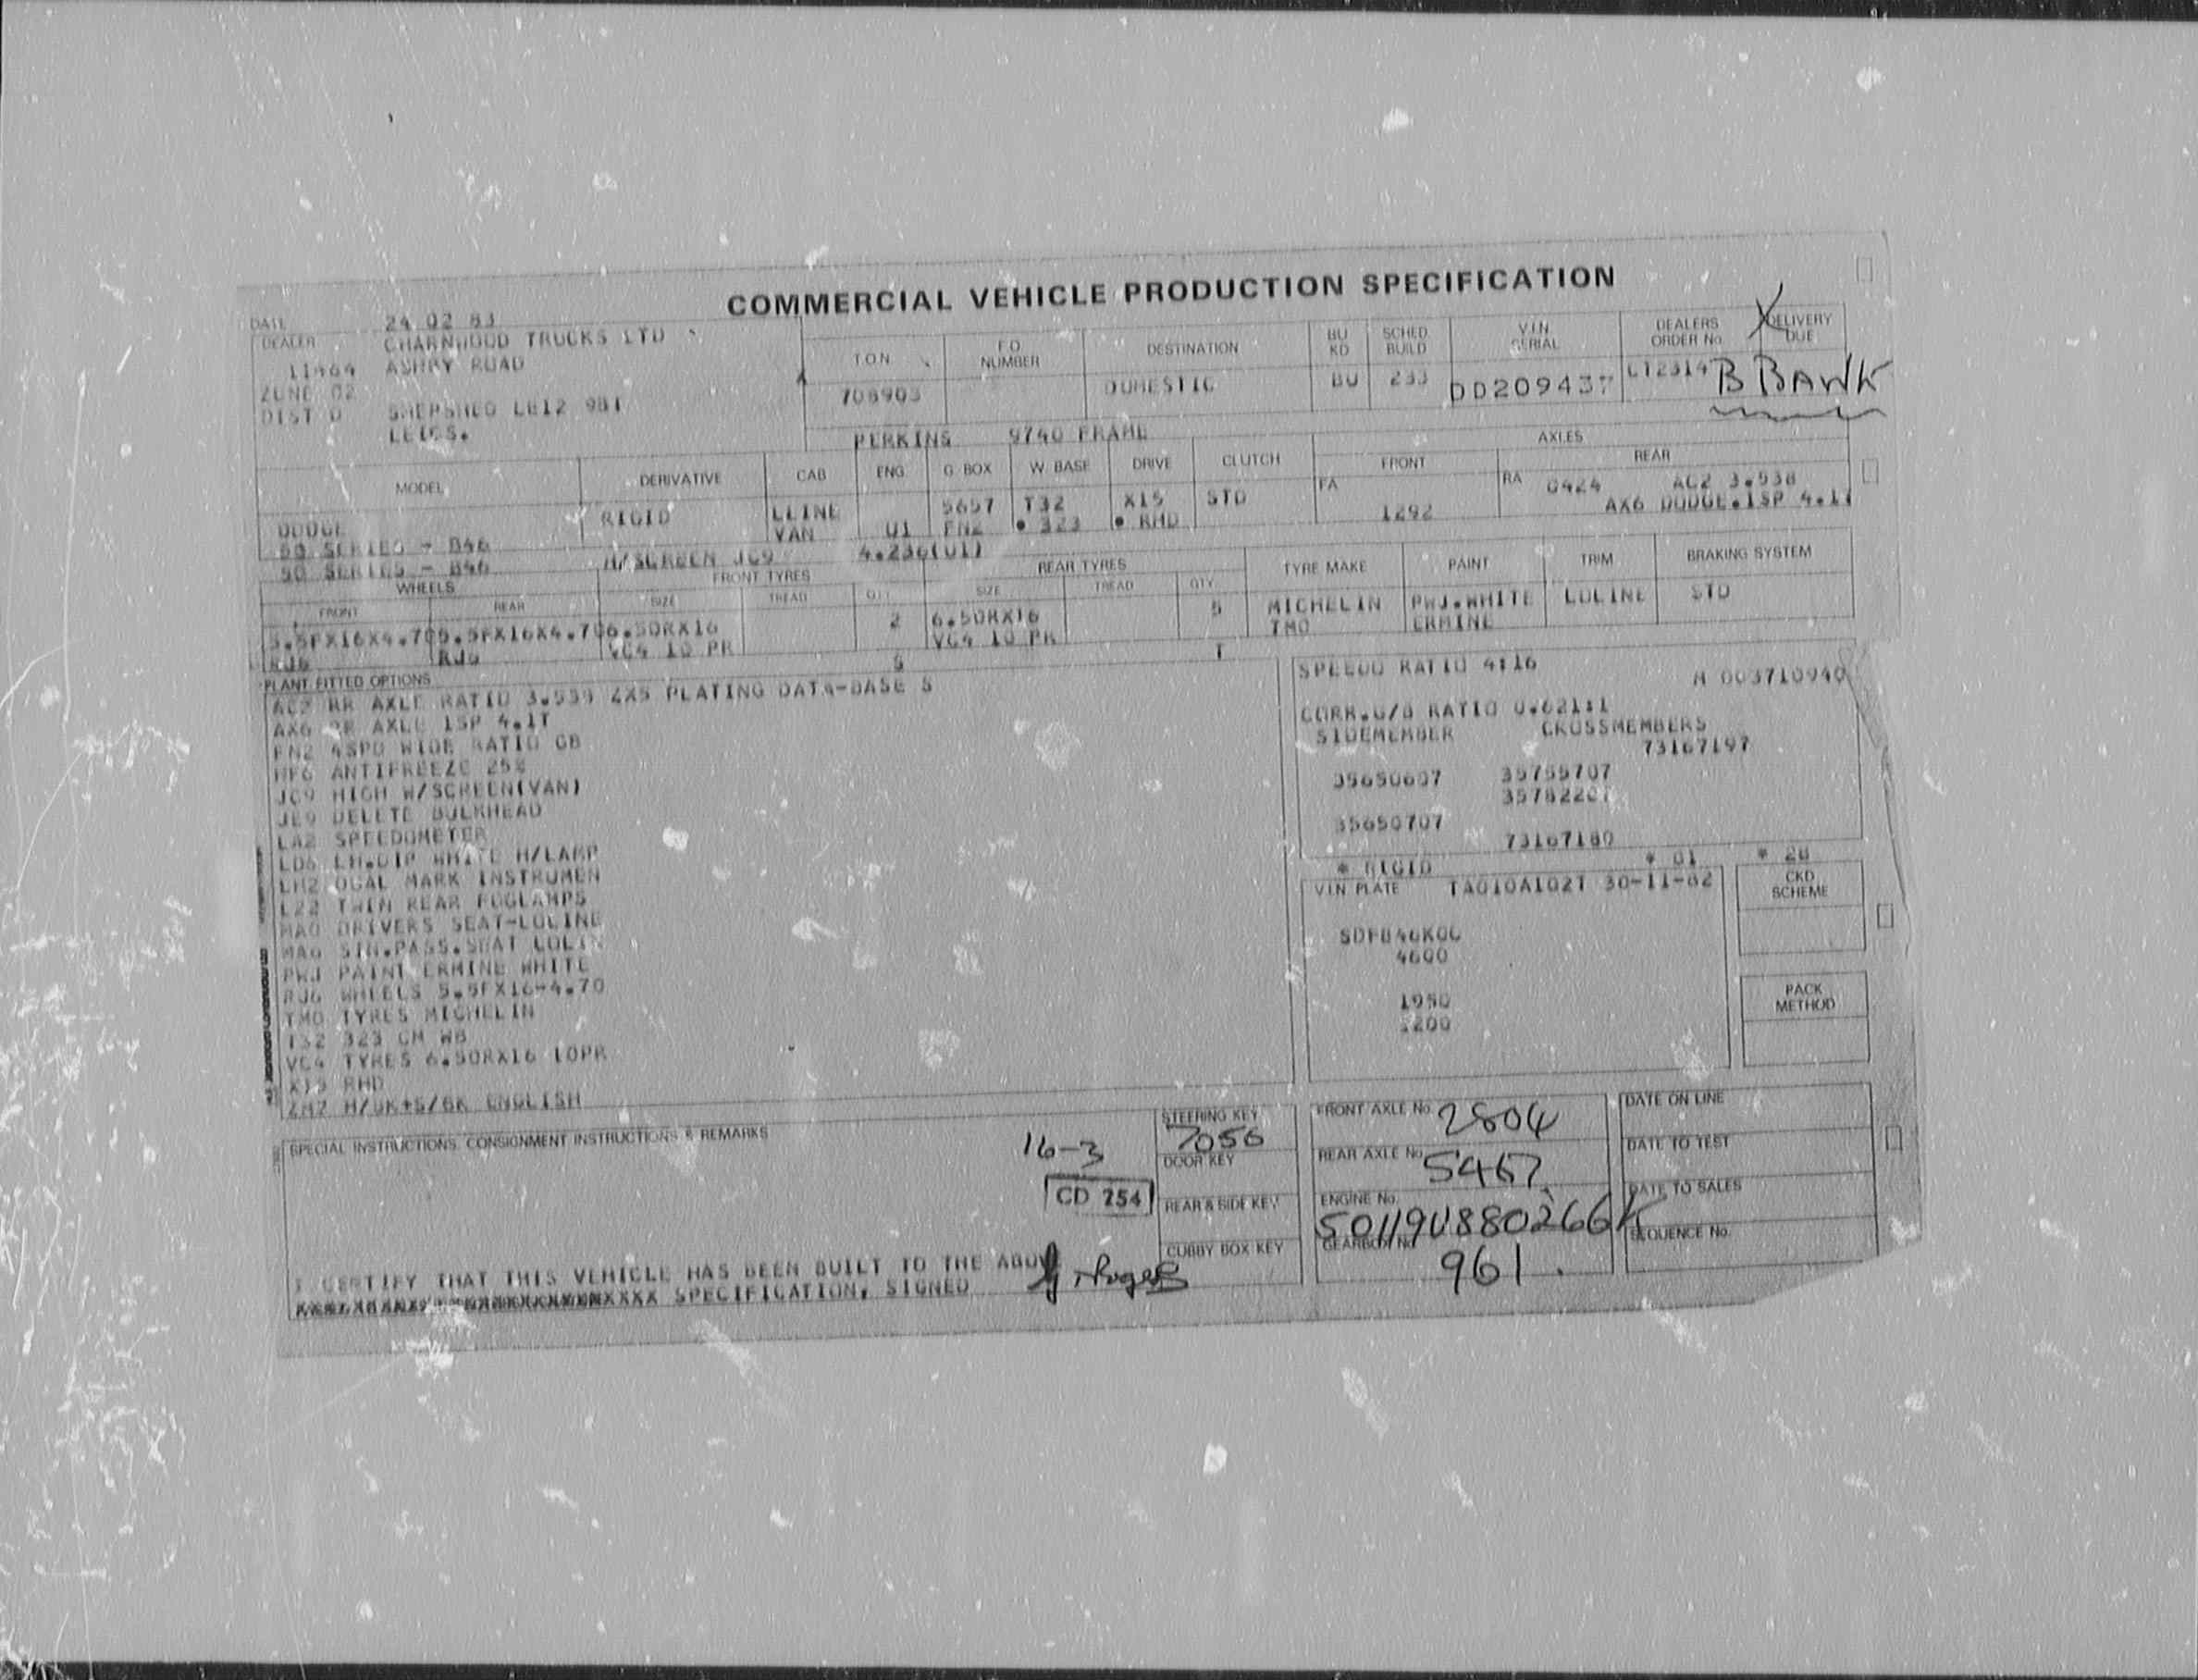 COMMERCIAL VEHICLE PRODUCTION SPECIFICATION
DATE 24 02 83
DEALER CHARNWOOD TRUCKS LTD
11464 ASHBY ROAD
ZONE 02
DIST D SHEPSHED LE12 9BT
LEICS.
T.O.N. F.O. NUMBER DESTINATION BU KD SCHED. BUILD V.I.N. SERIAL DEALERS ORDER No. DELIVERY DUE
708903 DOMESTIC BU 233 DD209437 B BANK
PERKINS 9740 FRAME
MODEL DERIVATIVE CAB ENG G. BOX W. BASE DRIVE CLUTCH AXLES FRONT REAR
DODGE RIGID LLINE 5657 T32 X15 STD FA RA G424 AC2 3.538
50 SERIES - B46 VAN U1 FN2 • 323 • RHD 1292 AX6 DODGE.1SP 4.1T
50 SERIES - B46 H/SCREEN JC9 4.236(U1)
WHEELS FRONT TYRES REAR TYRES TYRE MAKE PAINT TRIM BRAKING SYSTEM
FRONT REAR SIZE TREAD QTY SIZE TREAD QTY
5.5FX16X4.70 5.5FX16X4.70 6.50RX16 2 6.50RX16 5 MICHELIN PWJ.WHITE LOLINE STD
RJ6 RJ6 VC4 10 PR VC4 10 PR TMO ERMINE
PLANT FITTED OPTIONS S T
AC2 RR AXLE RATIO 3.539 ZX5 PLATING DATA-BASE S
AX6 RR AXLE 1SP 4.1T
FN2 4SPD WIDE RATIO GB
HF6 ANTIFREEZE 25%
JC9 HIGH W/SCREEN(VAN)
JE9 DELETE BULKHEAD
LA2 SPEEDOMETER
LD5 LH.DIP WHITE H/LAMP
LH2 DUAL MARK INSTRUMEN
L22 TWIN REAR FOGLAMPS
MA0 DRIVERS SEAT-LOLINE
MA6 SIN.PASS.SEAT LOLIN
PWJ PAINT ERMINE WHITE
RJ6 WHEELS 5.5FX16-4.70
TMO TYRES MICHELIN
T32 323 CM WB
VC4 TYRES 6.50RX16 10PR
X15 RHD
ZH2 H/BK+S/BK ENGLISH
SPEEDO RATIO 4:16 M 003710940
CORR.G/B RATIO 0.621:1
SIDEMEMBER CROSSMEMBERS
73167197
35650607 35755707
35650707
73167180
* RIGID * 01 * 28
V.I.N. PLATE TA010A102T 30-11-82
CKD SCHEME
4600
1950
PACK METHOD
SPECIAL INSTRUCTIONS. CONSIGNMENT INSTRUCTIONS & REMARKS
16-3
CD 254
STEERING KEY 7056
DOOR KEY
REAR & SIDE KEY
CUBBY BOX KEY
FRONT AXLE No. 2804
REAR AXLE No. 5467
ENGINE No. 50119U880266K
GEARBOX No. 961
DATE ON LINE
DATE TO TEST
DATE TO SALES
SEQUENCE No.
I CERTIFY THAT THIS VEHICLE HAS BEEN BUILT TO THE ABOVE
SPECIFICATION, SIGNED